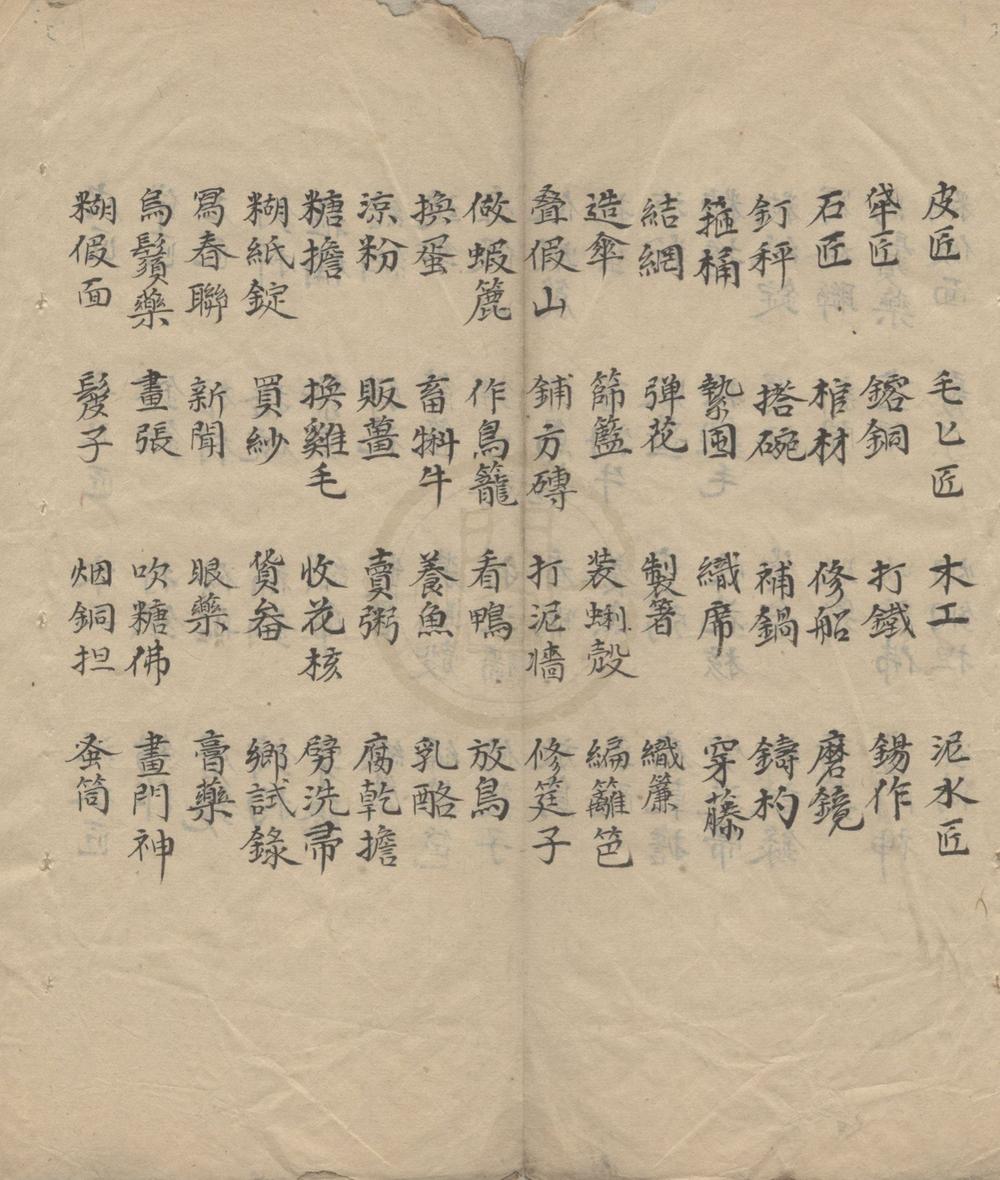 皮匠 毛匕匠 木工 泥水匠
匠 鎔銅 打鐵 錫作
石匠 棺材 修船 磨鏡
釘秤 搭碗 補鍋 鑄杓
箍桶 織席 穿藤
結網 弹花 製箸 織簾
造傘 篩籃 装蜊殼 編籬笆
叠假山 鋪方磚 打泥墻 修筳子
做蝦簏 作鳥籠 看鴨 放鳥
換蛋 畜牛 養魚 乳酪
涼粉 販薑 賣粥 腐乾擔
糖擔 換雞毛 收花核 劈洗帚
糊紙錠 買紗 貨畚 鄉試錄
冩春聯 新聞 眼藥 膏藥
烏鬚藥 畫張 吹糖佛 畫門神
糊假面 髮子 烟銅担 蚕筒